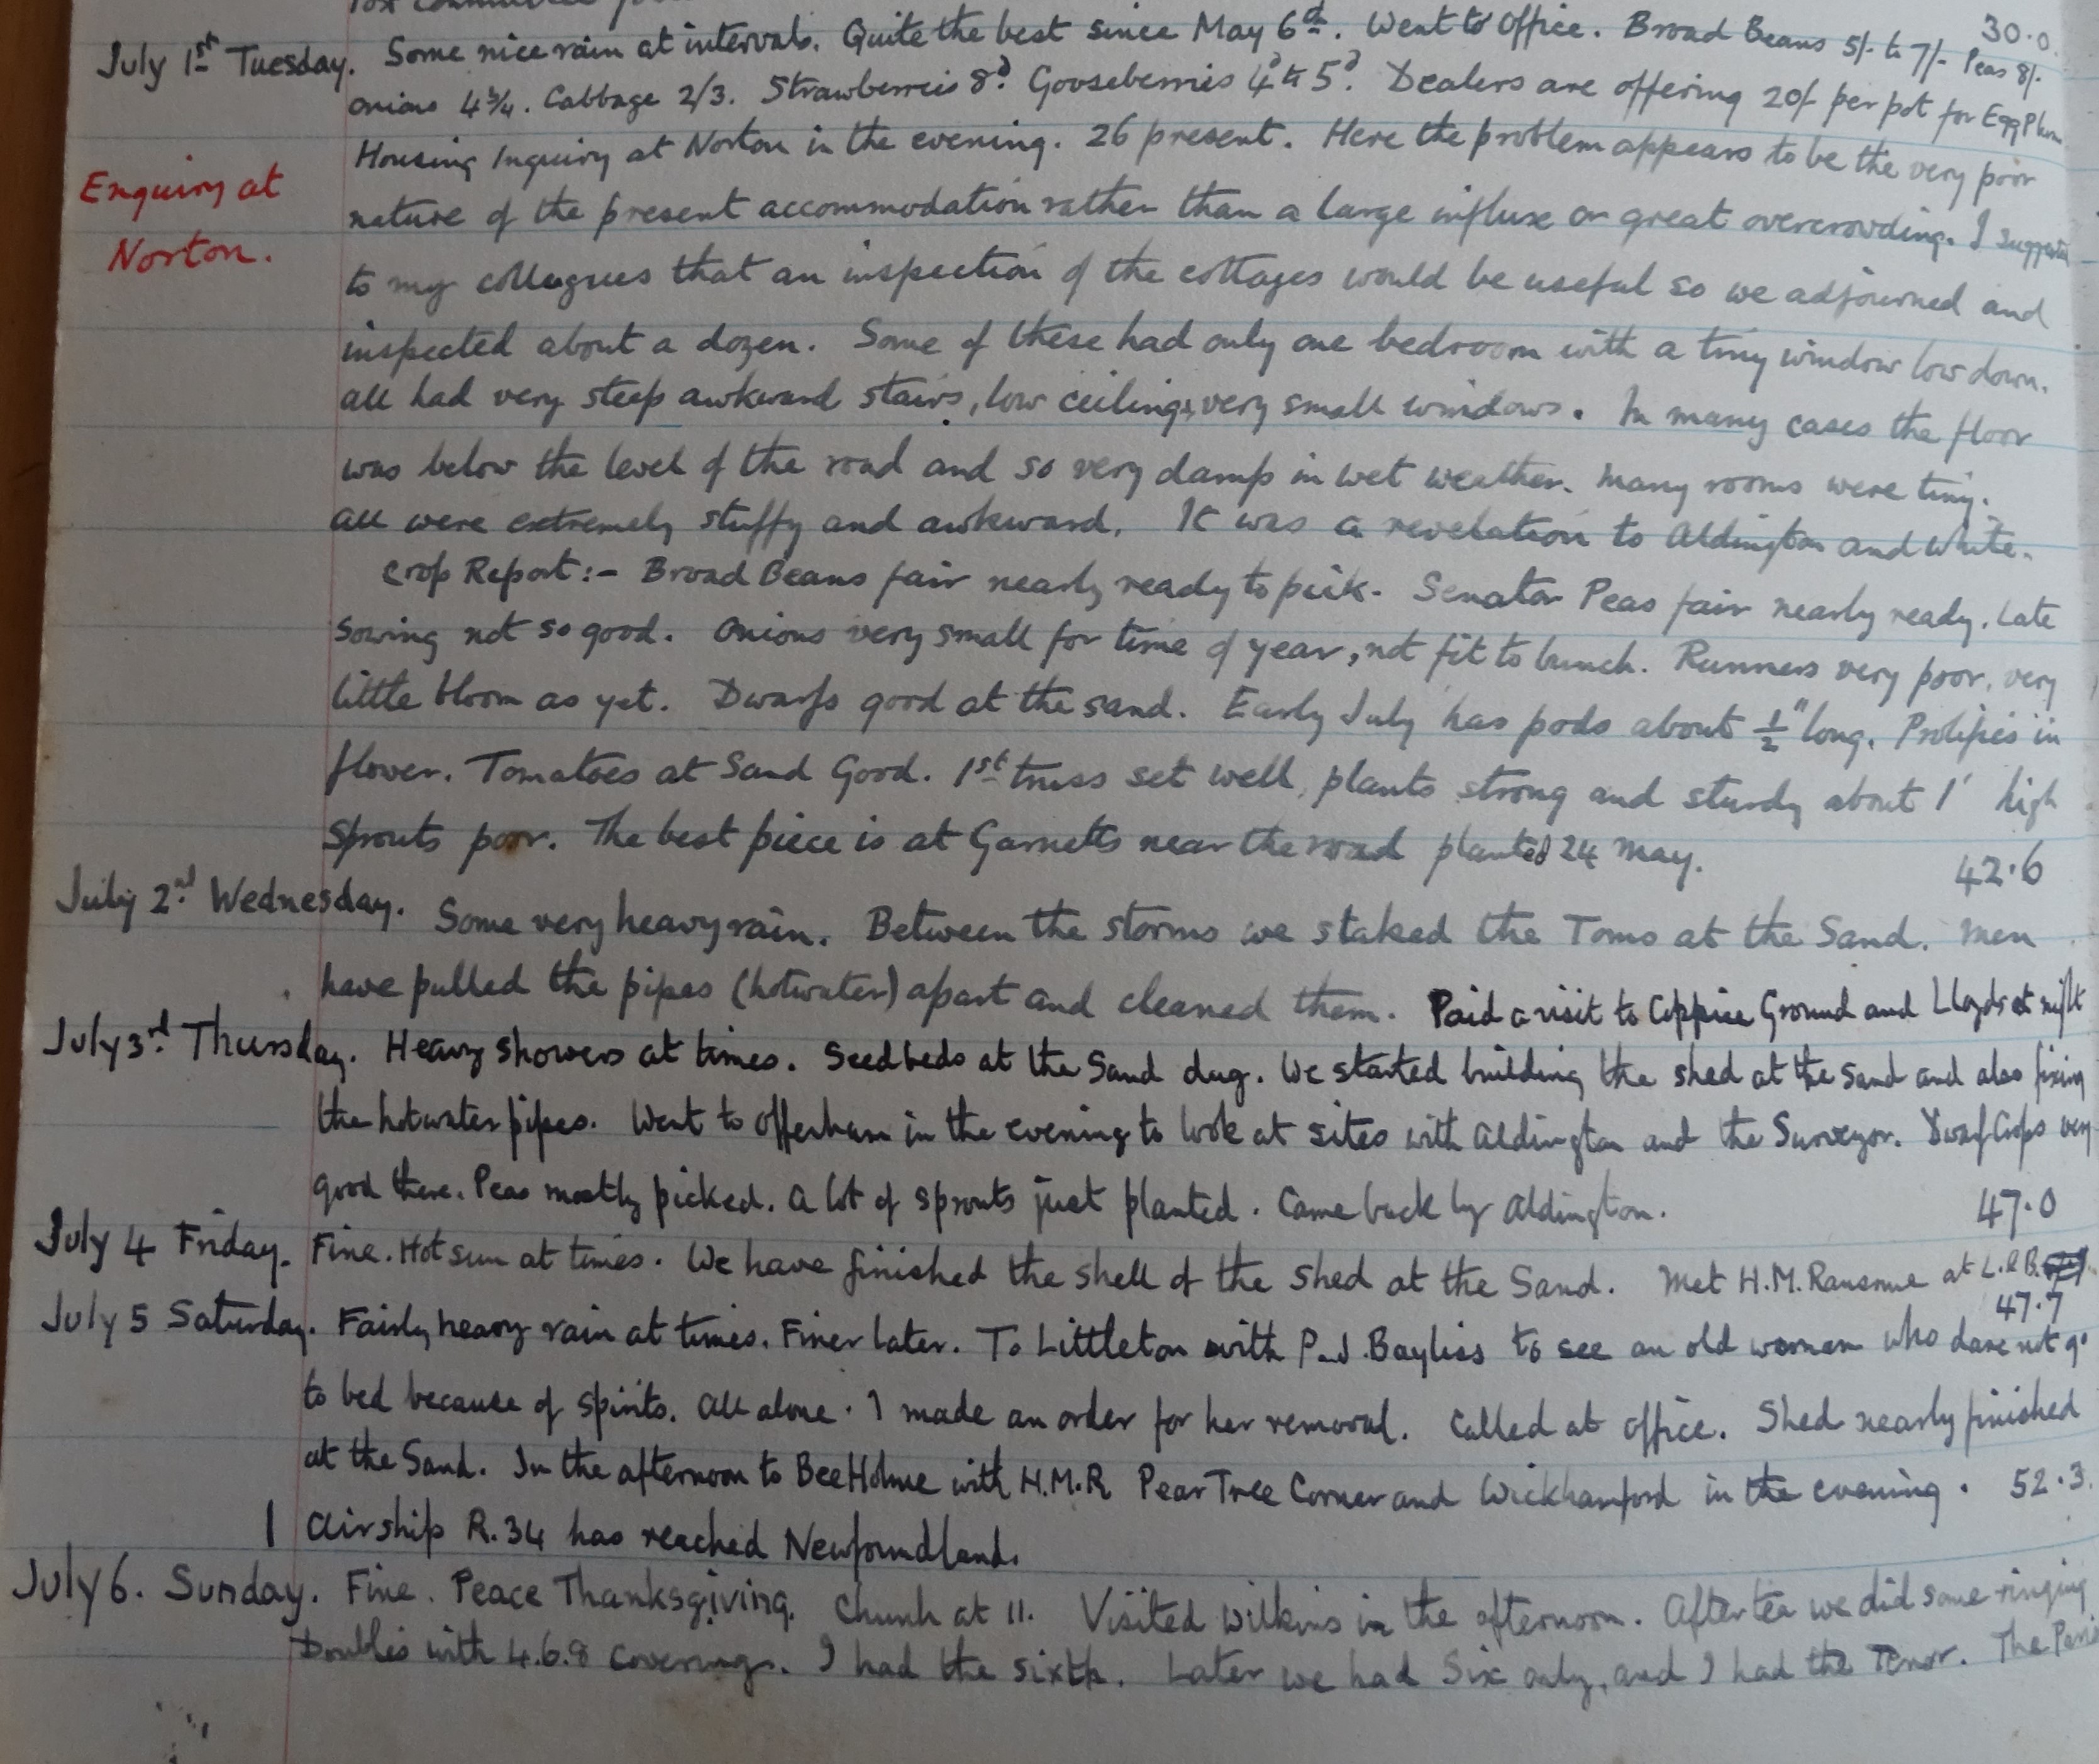 30.0.
July 1st Tuesday. Some nice rain at intervals. Quite the best since May 6th. Went to Office. Broad Beans 5/- to 7/- Peas 8/-
onions 4¾. Cabbage 2/3. Strawberries 8d. Gooseberries 4d to 5d. Dealers are offering 20/ per pot for Egg Plum
Housing Inquiry at Norton in the evening. 26 present. Here the problem appears to be the very poor
Enquiry at
Norton.
nature of the present accommodation rather than a large influx or great overcrowding. I suggested
to my collegues that an inspection of the cottages would be useful so we adjourned and
inspected about a dozen. Some of these had only one bedroom with a tiny window low down.
all had very steep awkward stairs, low ceilings, very small windows. In many cases the floor
was below the level of the road and so very damp in wet weather. Many rooms were tiny.
all were extremely stuffy and awkward. It was a revelation to Aldington and White.
Crop Report:- Broad Beans fair nearly ready to pick. Senator Peas fair nearly ready. Late
sowing not so good. Onions very small for time of year, not fit to bunch. Runners very poor, very
little bloom as yet. Dwarfs good at the sand. Early July has pods about ½" long. Prolifics in
flower. Tomatoes at Sand Good. 1st truss set well, plants strong and sturdy about 1' high
Sprouts poor. The best piece is at Garnetts near the road planted 24 May.
42.6
July 2nd Wednesday. Some very heavy rain. Between the storms we staked the Toms at the Sand. Men
have pulled the pipes (hotwater) apart and cleaned them. Paid a visit to Coppice Ground and Lloyds at night
July 3rd Thursday. Heavy showers at times. Seedbeds at the Sand dug. We started building the shed at the Sand and also fixing
the hotwater pipes. Went to Offenham in the evening to look at sites with Aldington and the Surveyor. Dwarf Crops very
good there. Peas mostly picked. A lot of sprouts just planted. Came back by Aldington.
47.0
July 4 Friday. Fine. Hot sun at times. We have finished the shell of the shed at the Sand. Met H.M. Ransome at L.&B.
47.7
July 5 Saturday. Fairly heavy rain at times. Finer later. To Littleton with P.J. Bayliss to see an old woman who dare not go
to bed because of spirits. All alone. I made an order for her removal. Called at office. Shed nearly finished
at the Sand. In the afternoon to Bee Holme with H.M.R Pear Tree Corner and Wickhamford in the evening. 52.3.
Airship R.34 has reached Newfoundland.
July 6. Sunday. Fine. Peace Thanksgiving. Church at 11. Visited Wilkins in the afternoon. After tea we did some ringing
Doubles with 4.6.8 coverings. I had the sixth. Later we had Six only, and I had the Tenor. The